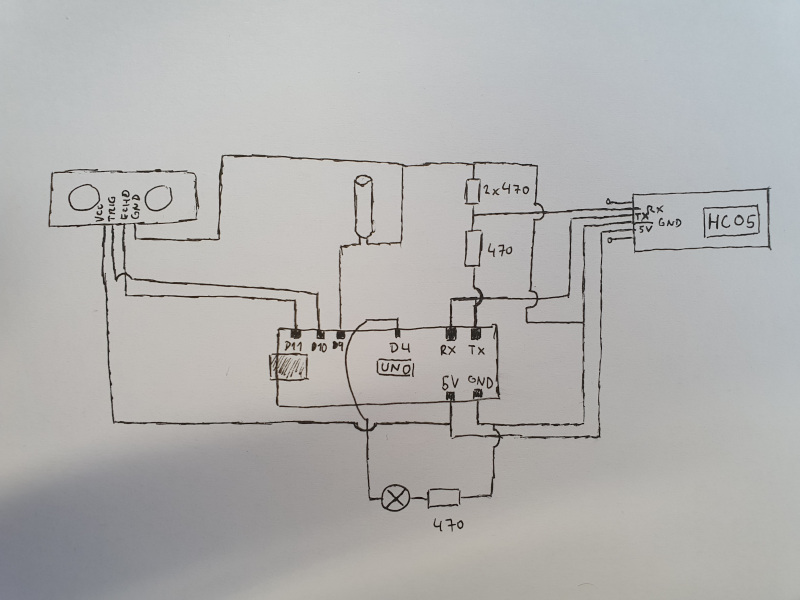 VCC
TRIG
ECHO
GND
2x470
470
RX
TX
GND
5V
HC05
D11
D10
D9
D4
RX
TX
UNO
5V
GND
470